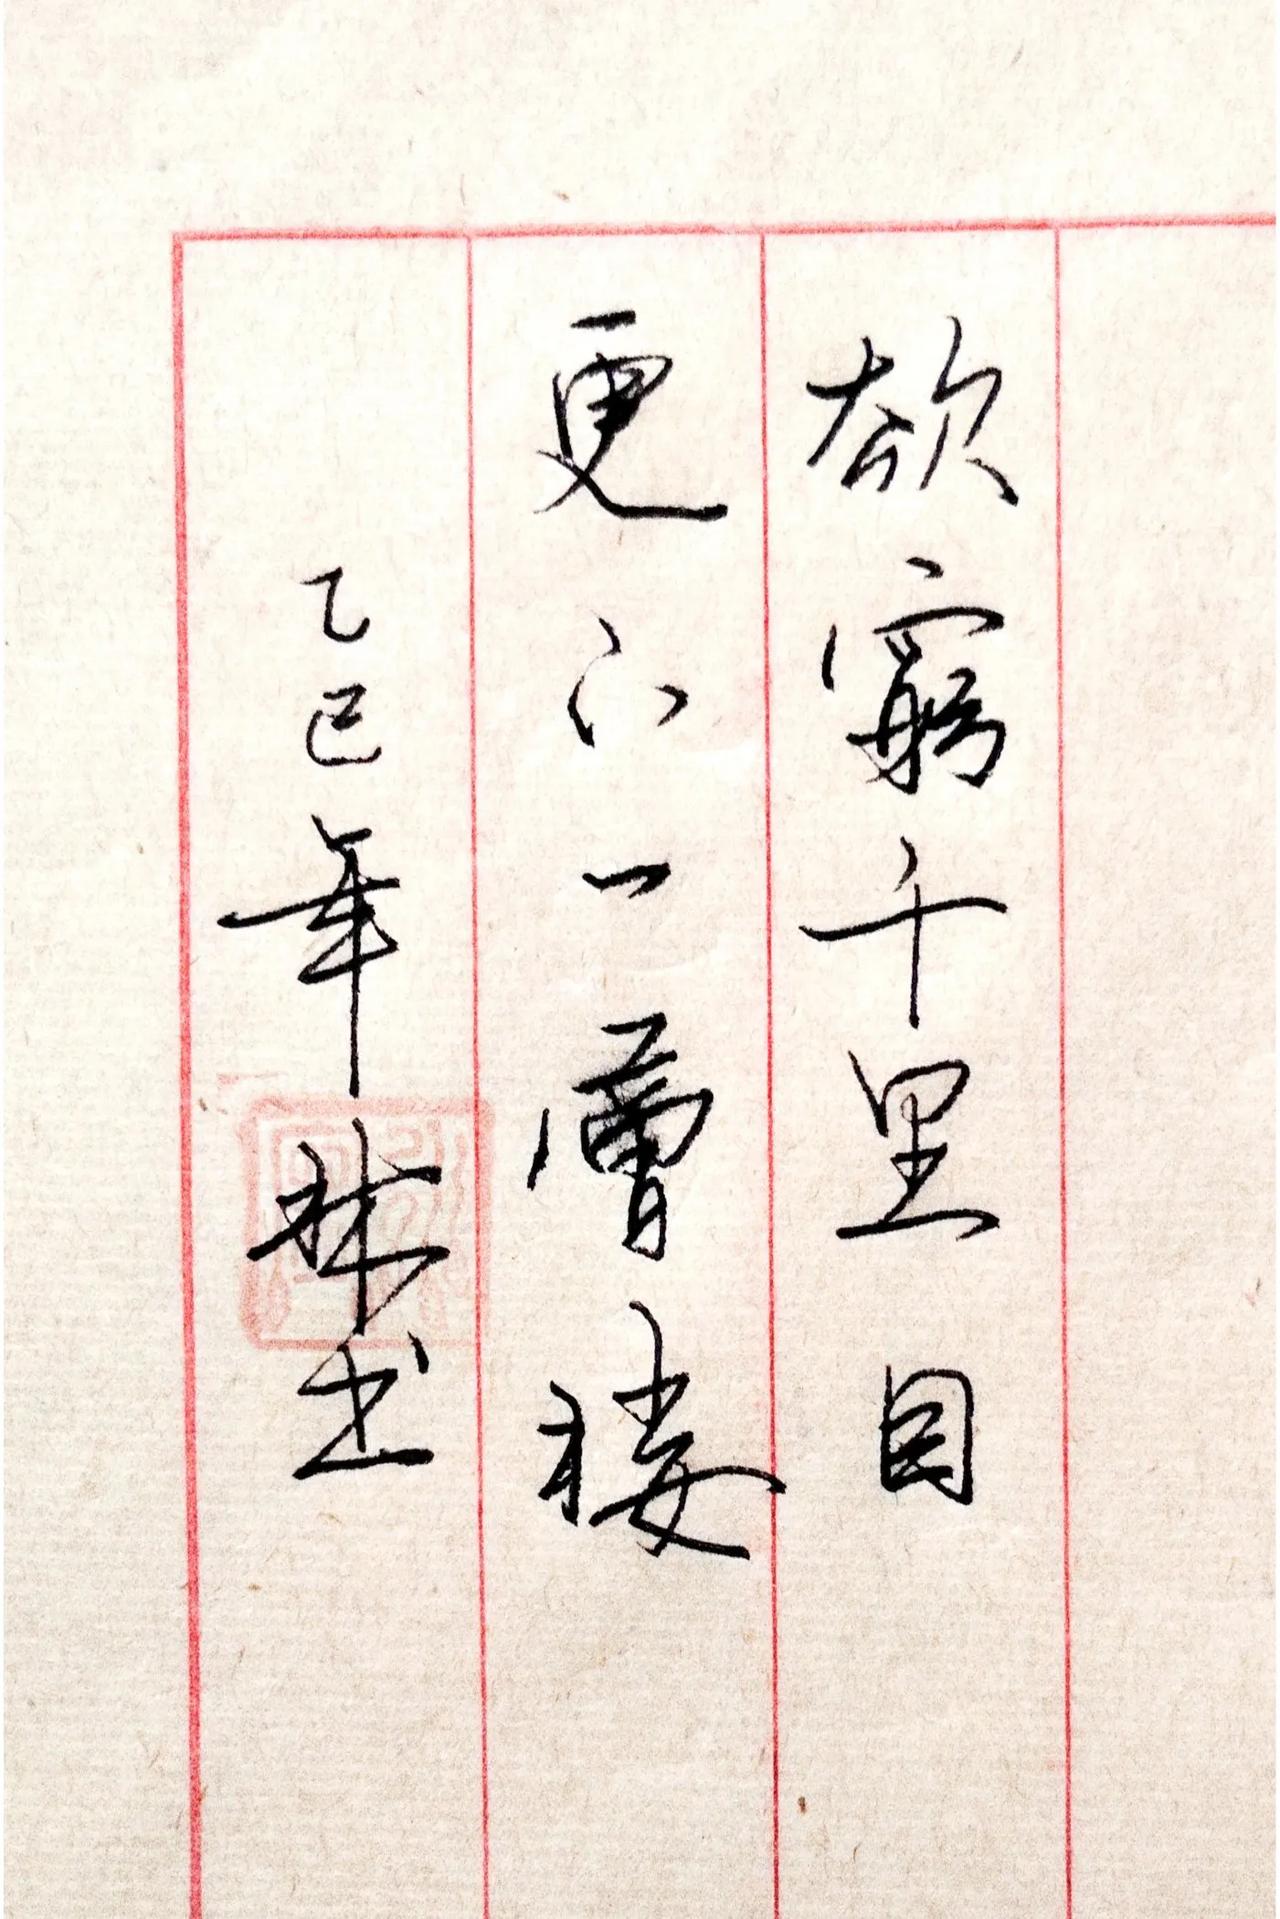 欲窮千里目
更上一層樓
乙巳年林书